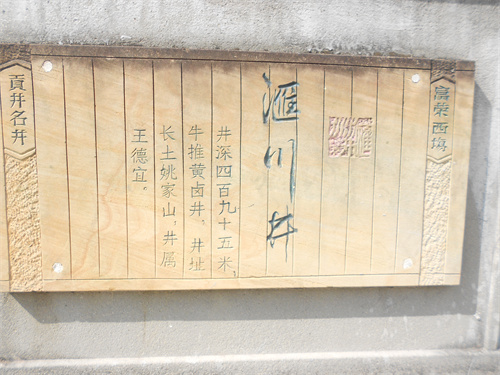 富荣西场
滙川井
井深四百九十五米，
牛推黄卤井。井址
长土姚家山，井属
王德宜。
贡井名井